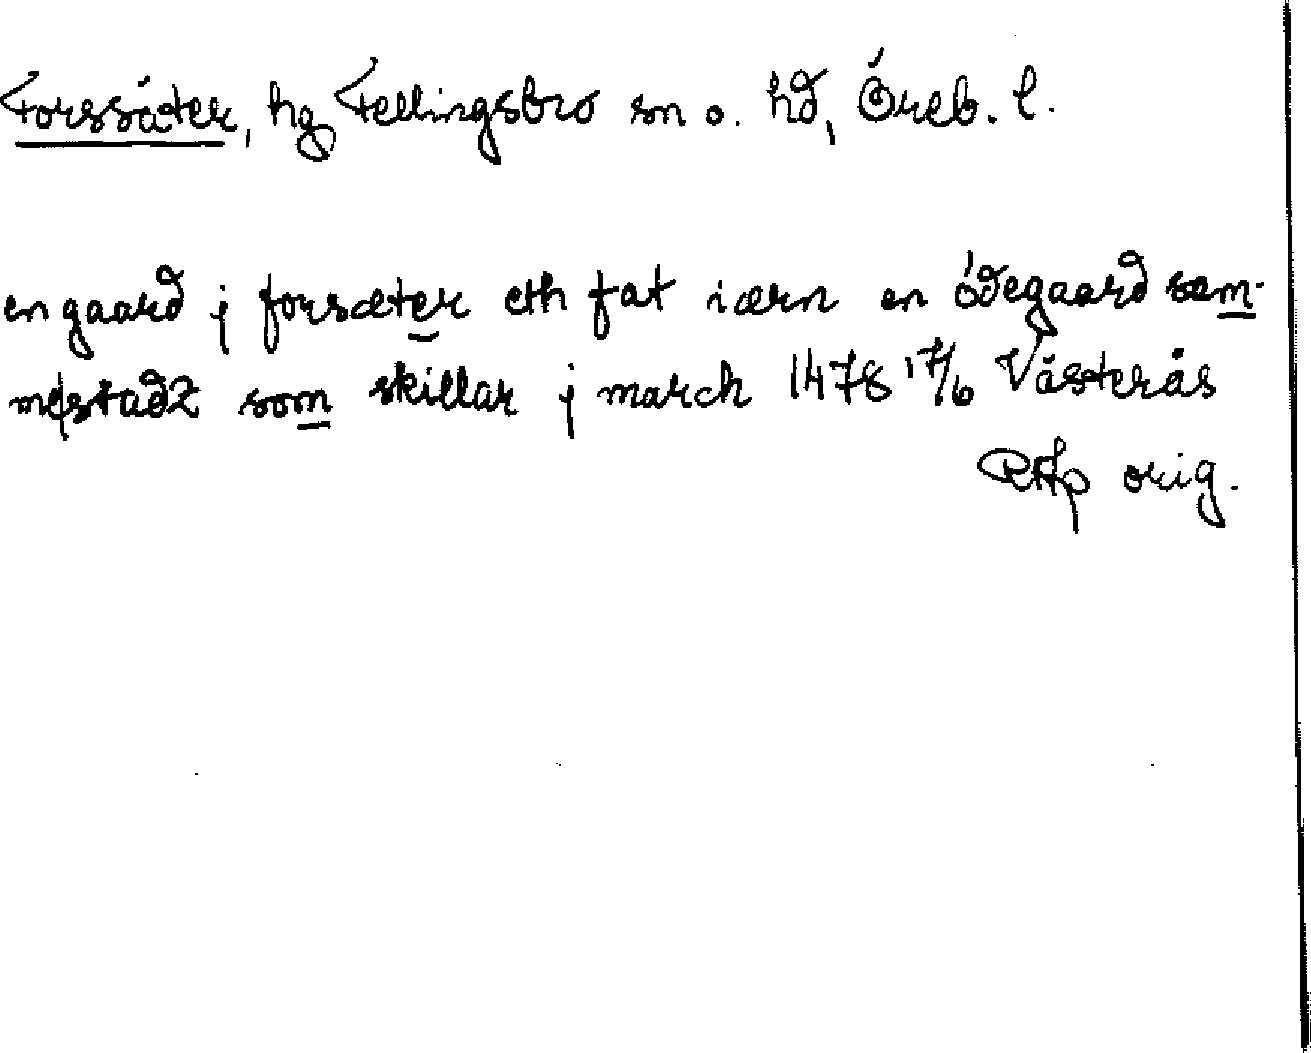 Forssäter, hg Fellingsbro sn o. hd, Öreb. l.
en gaard j forsæter eth fat iærn en ödegaard som-
mestadz som skillar j march 1478 17/6 Västerås
RAp orig.